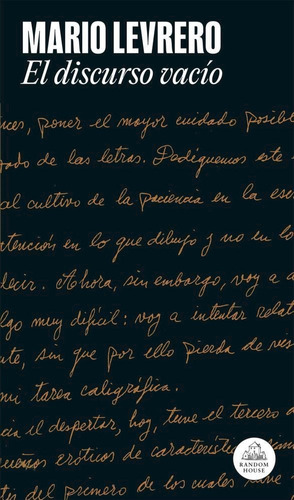 MARIO LEVRERO
El discurso vacío
nces, poner el mayor cuidado posibl
zado de las letras. Dediquemos este
al cultivo de la paciencia en la esc
atención en lo que dibujo y no en lo
decir. Ahora, sin embargo, voy a a
lgo muy difícil: voy a intentar relat
te, sin que por ello pierda de vis
mi tarea caligráfica.
cia el despertar, hoy, tuve el tercero
queños eróticos de característic
tes del primero de los cuales tuve
RANDOM
HOUSE